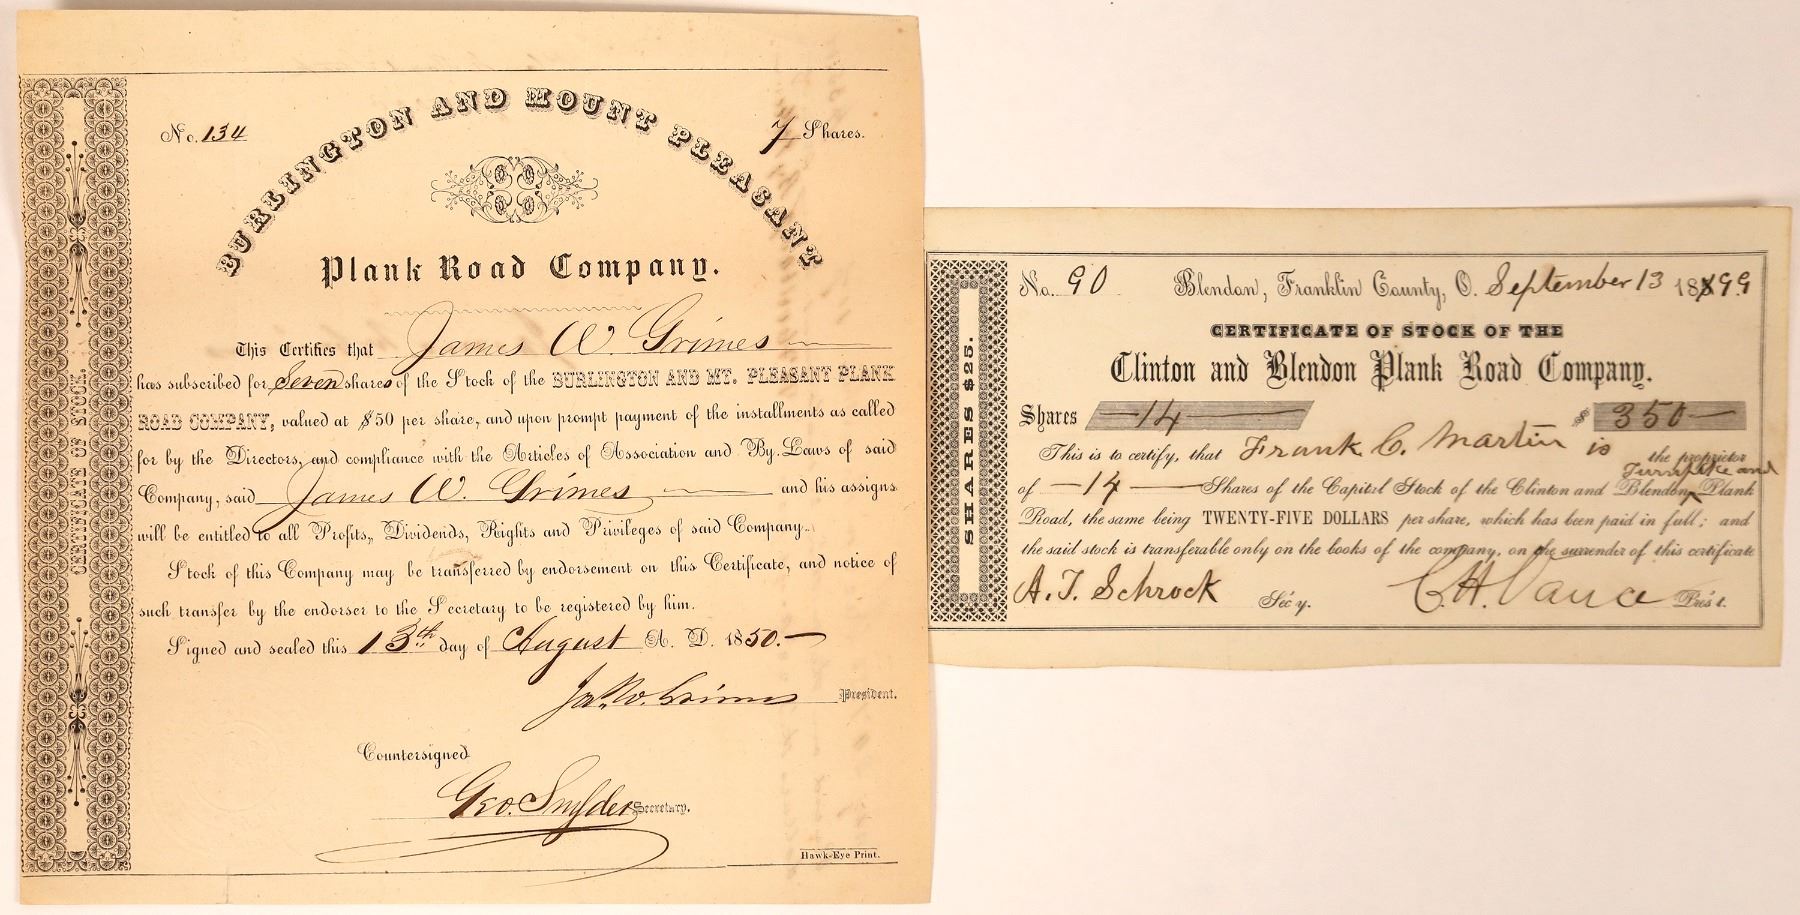 No. 134
7 Shares.
BURLINGTON AND MOUNT PLEASANT
Plank Road Company.
This Certifies that James W. Grimes
has subscribed for Seven shares of the Stock of the BURLINGTON AND MT. PLEASANT PLANK
ROAD COMPANY, valued at $50 per share, and upon prompt payment of the installments as called
for by the Directors, and compliance with the Articles of Association and By-Laws of said
Company, said James W. Grimes and his assigns
will be entitled to all Profits, Dividends, Rights and Privileges of said Company.
Stock of this Company may be transferred by endorsement on this Certificate, and notice of
such transfer by the endorser to the Secretary to be registered by him.
Signed and sealed this 13th day of August A. D. 1850.
Jas. W. Grimes President.
Countersigned
Geo. Snyder Secretary.
Hawk-Eye Print.
CERTIFICATE OF STOCK.
SHARES $25.
No. 90 Blendon, Franklin County, O. September 13 1899
CERTIFICATE OF STOCK OF THE
Clinton and Blendon Plank Road Company.
Shares 14 $ 350
This is to certify, that Frank C. Martin is the proprietor
Turnpike and
of 14 Shares of the Capital Stock of the Clinton and Blendon Plank
Road, the same being TWENTY-FIVE DOLLARS per share, which has been paid in full; and
the said stock is transferable only on the books of the company, on the surrender of this certificate
A. T. Schrock Sec'y. C. H. Vance Pres't.